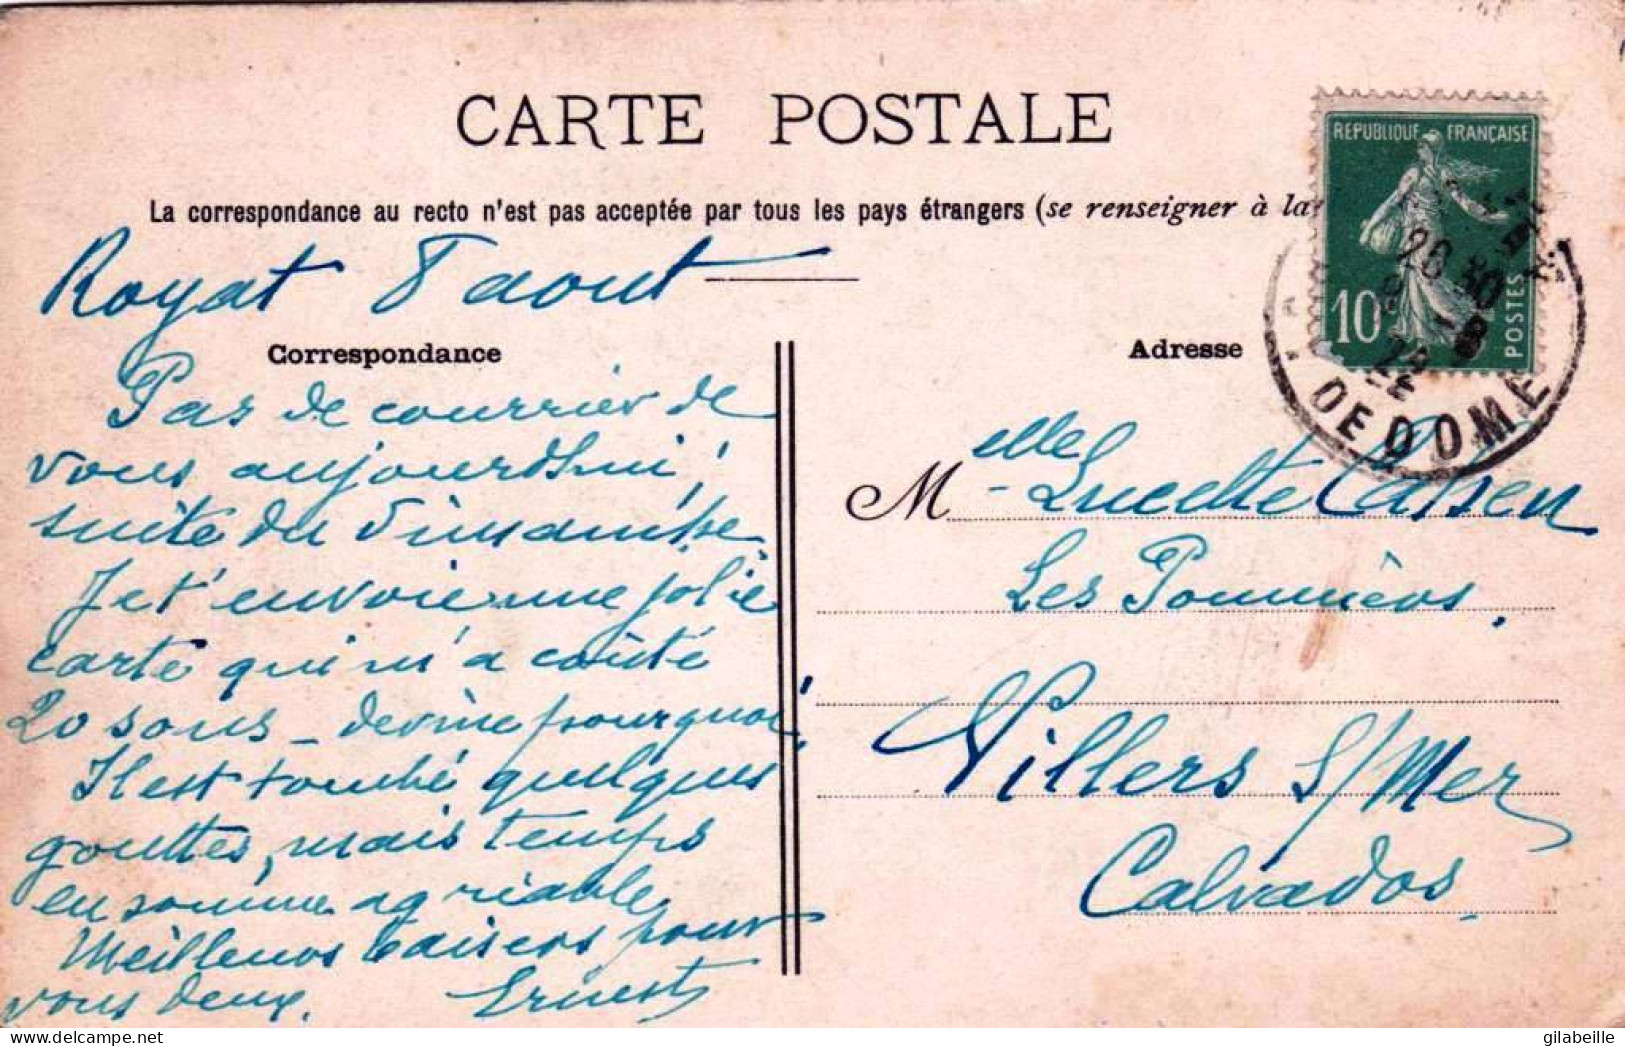 CARTE POSTALE
La correspondance au recto n'est pas acceptée par tous les pays étrangers (se renseigner à la
Royat 8 aout
Correspondance
Pas de courrier de
vous aujourd'hui,
suite du dimanche.
Je t'envoie une jolie
carte qui m'a coûté
20 sous - devine pourquoi!
Il est tombé quelques
gouttes, mais temps
en somme agréable.
Meilleurs baisers pour
vous deux. Ernest
REPUBLIQUE FRANÇAISE
10c
POSTES
DE DOME
Adresse
Melle Lucette
Les Pommiers.
Villers s/Mer
Calvados.
gilabeille